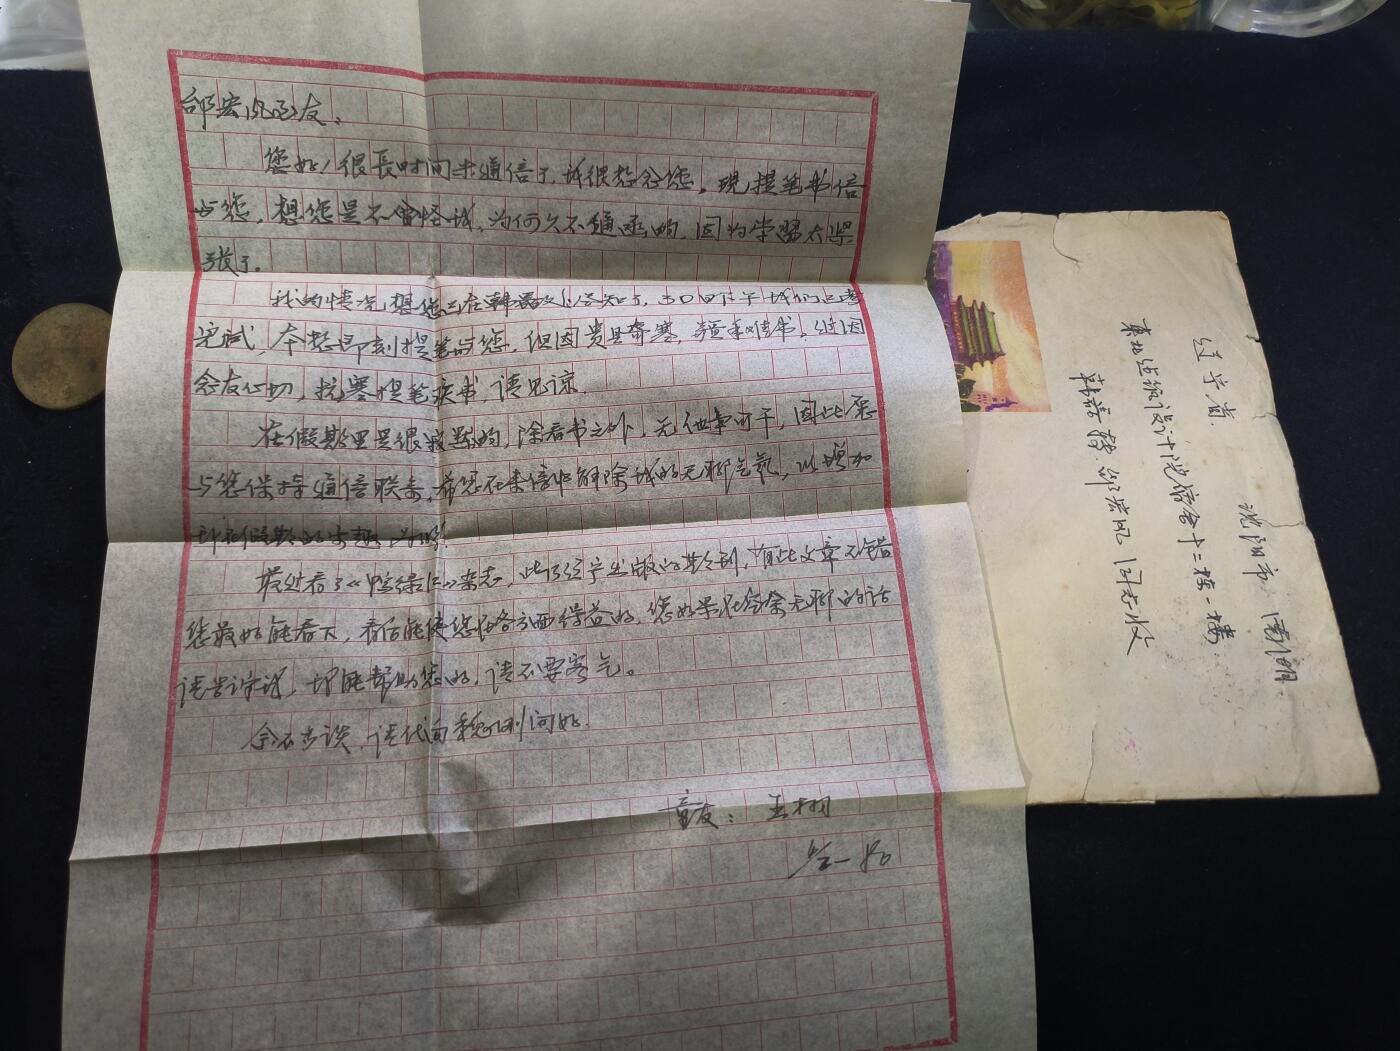 邰宏凤学友：
您好！很長时间未通信了，我很想念您。現提笔书信
与您，想您是不會怪我，为何久不通函的，因为学習太緊
張了。
我的情况想您已在韩 知了，30日下午我们已考
完試，本想即刻提笔与您，但因贵县奇寒， 书，但因
念友心切，抗寒提笔 书，请见谅.
在假期里是很寂默的，除看书之外，无他事可干，因此愿
与您保持通信联系，希您在来信中解除我的无聊之氣，以增加
我在假期的乐趣为盼.
最近看了《 》杂志，此乃辽宁出版的期刊，有些文章不错
您最好能看下，看后能使您在各方面得益的，您如果在空余无聊的话
请告诉我，我能幫助您的，请不要客气。
余不多谈，请代向 问好.
童友：王树
辽宁省
沈阳市 南湖
东北建筑设计院宿舍十二栋一楼
韩 转 邰宏凤 同志收